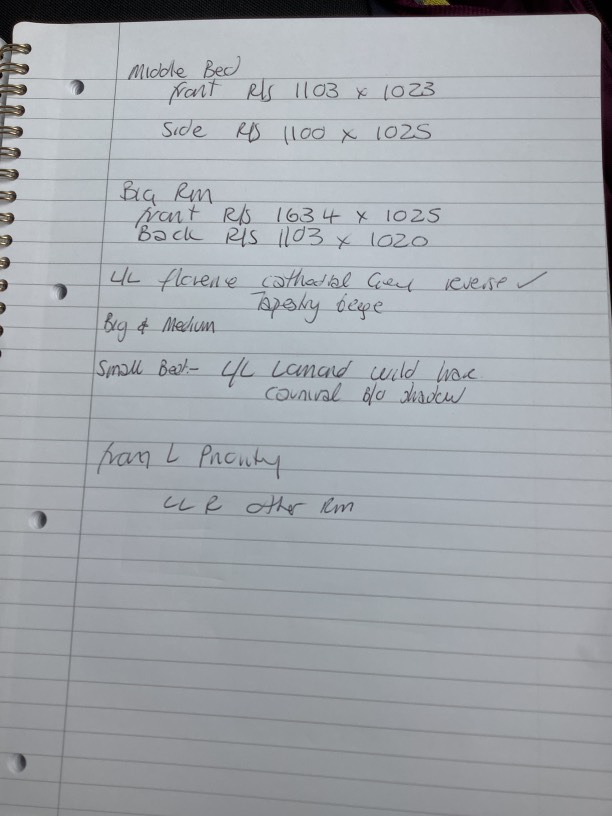 Middle Bed
front R/S 1103 x 1023
Side R/S 1100 x 1025
Big Rm
front R/S 1634 x 1025
Back R/S 1103 x 1020
4/L florence cathedral Grey reverse ✓
Tapestry beige
Big & Medium
Small Bed:- 4/L wild
B/O shadow
from L Priority
R other Rm